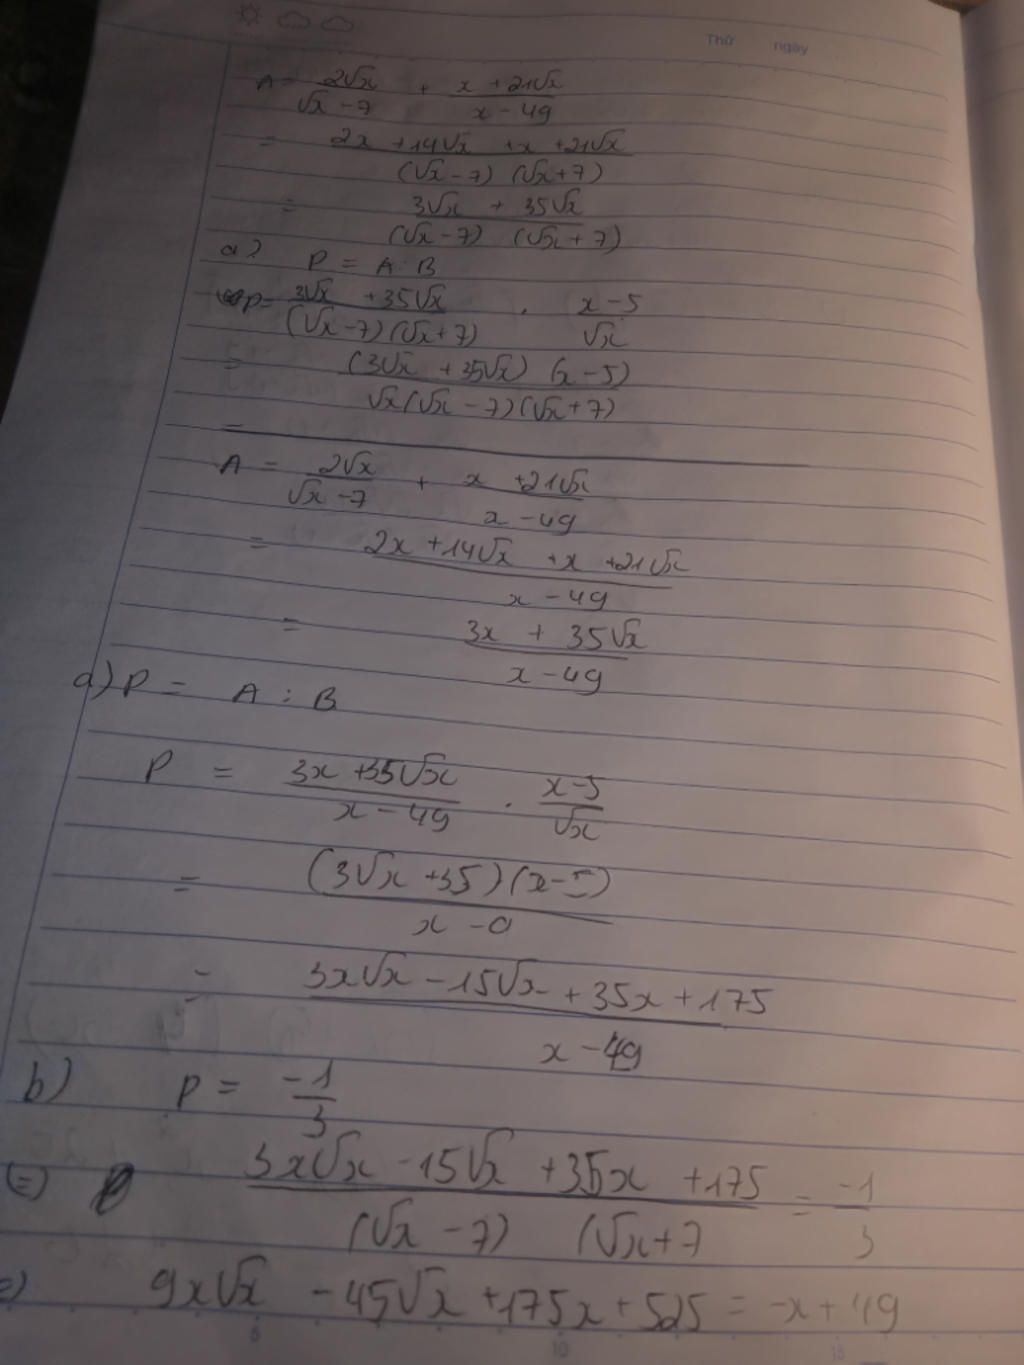 Thứ ngày
A = 2√x/(√x - 7) + (x + 21√x)/(x - 49)
= (2x + 14√x + x + 21√x)/((√x - 7)(√x + 7))
= (3√x + 35√x)/((√x - 7)(√x + 7))
a) P = A : B
P = (3√x + 35√x)/((√x - 7)(√x + 7)) . (x - 5)/√x
= ((3√x + 35√x)(x - 5))/(√x(√x - 7)(√x + 7))
=
A = 2√x/(√x - 7) + (x + 21√x)/(x - 49)
= (2x + 14√x + x + 21√x)/(x - 49)
= (3x + 35√x)/(x - 49)
a) P = A : B
P = (3x + 35√x)/(x - 49) . (x - 5)/√x
= ((3√x + 35)(x - 5))/(x - 9)
= (3x√x - 15√x + 35x + 175)/(x - 49)
b) P = -1/3
(=) (3x√x - 15√x + 35x + 175)/((√x - 7)(√x + 7) = -1/3
=) 9x√x - 45√x + 175x + 525 = -x + 49
5 10 15